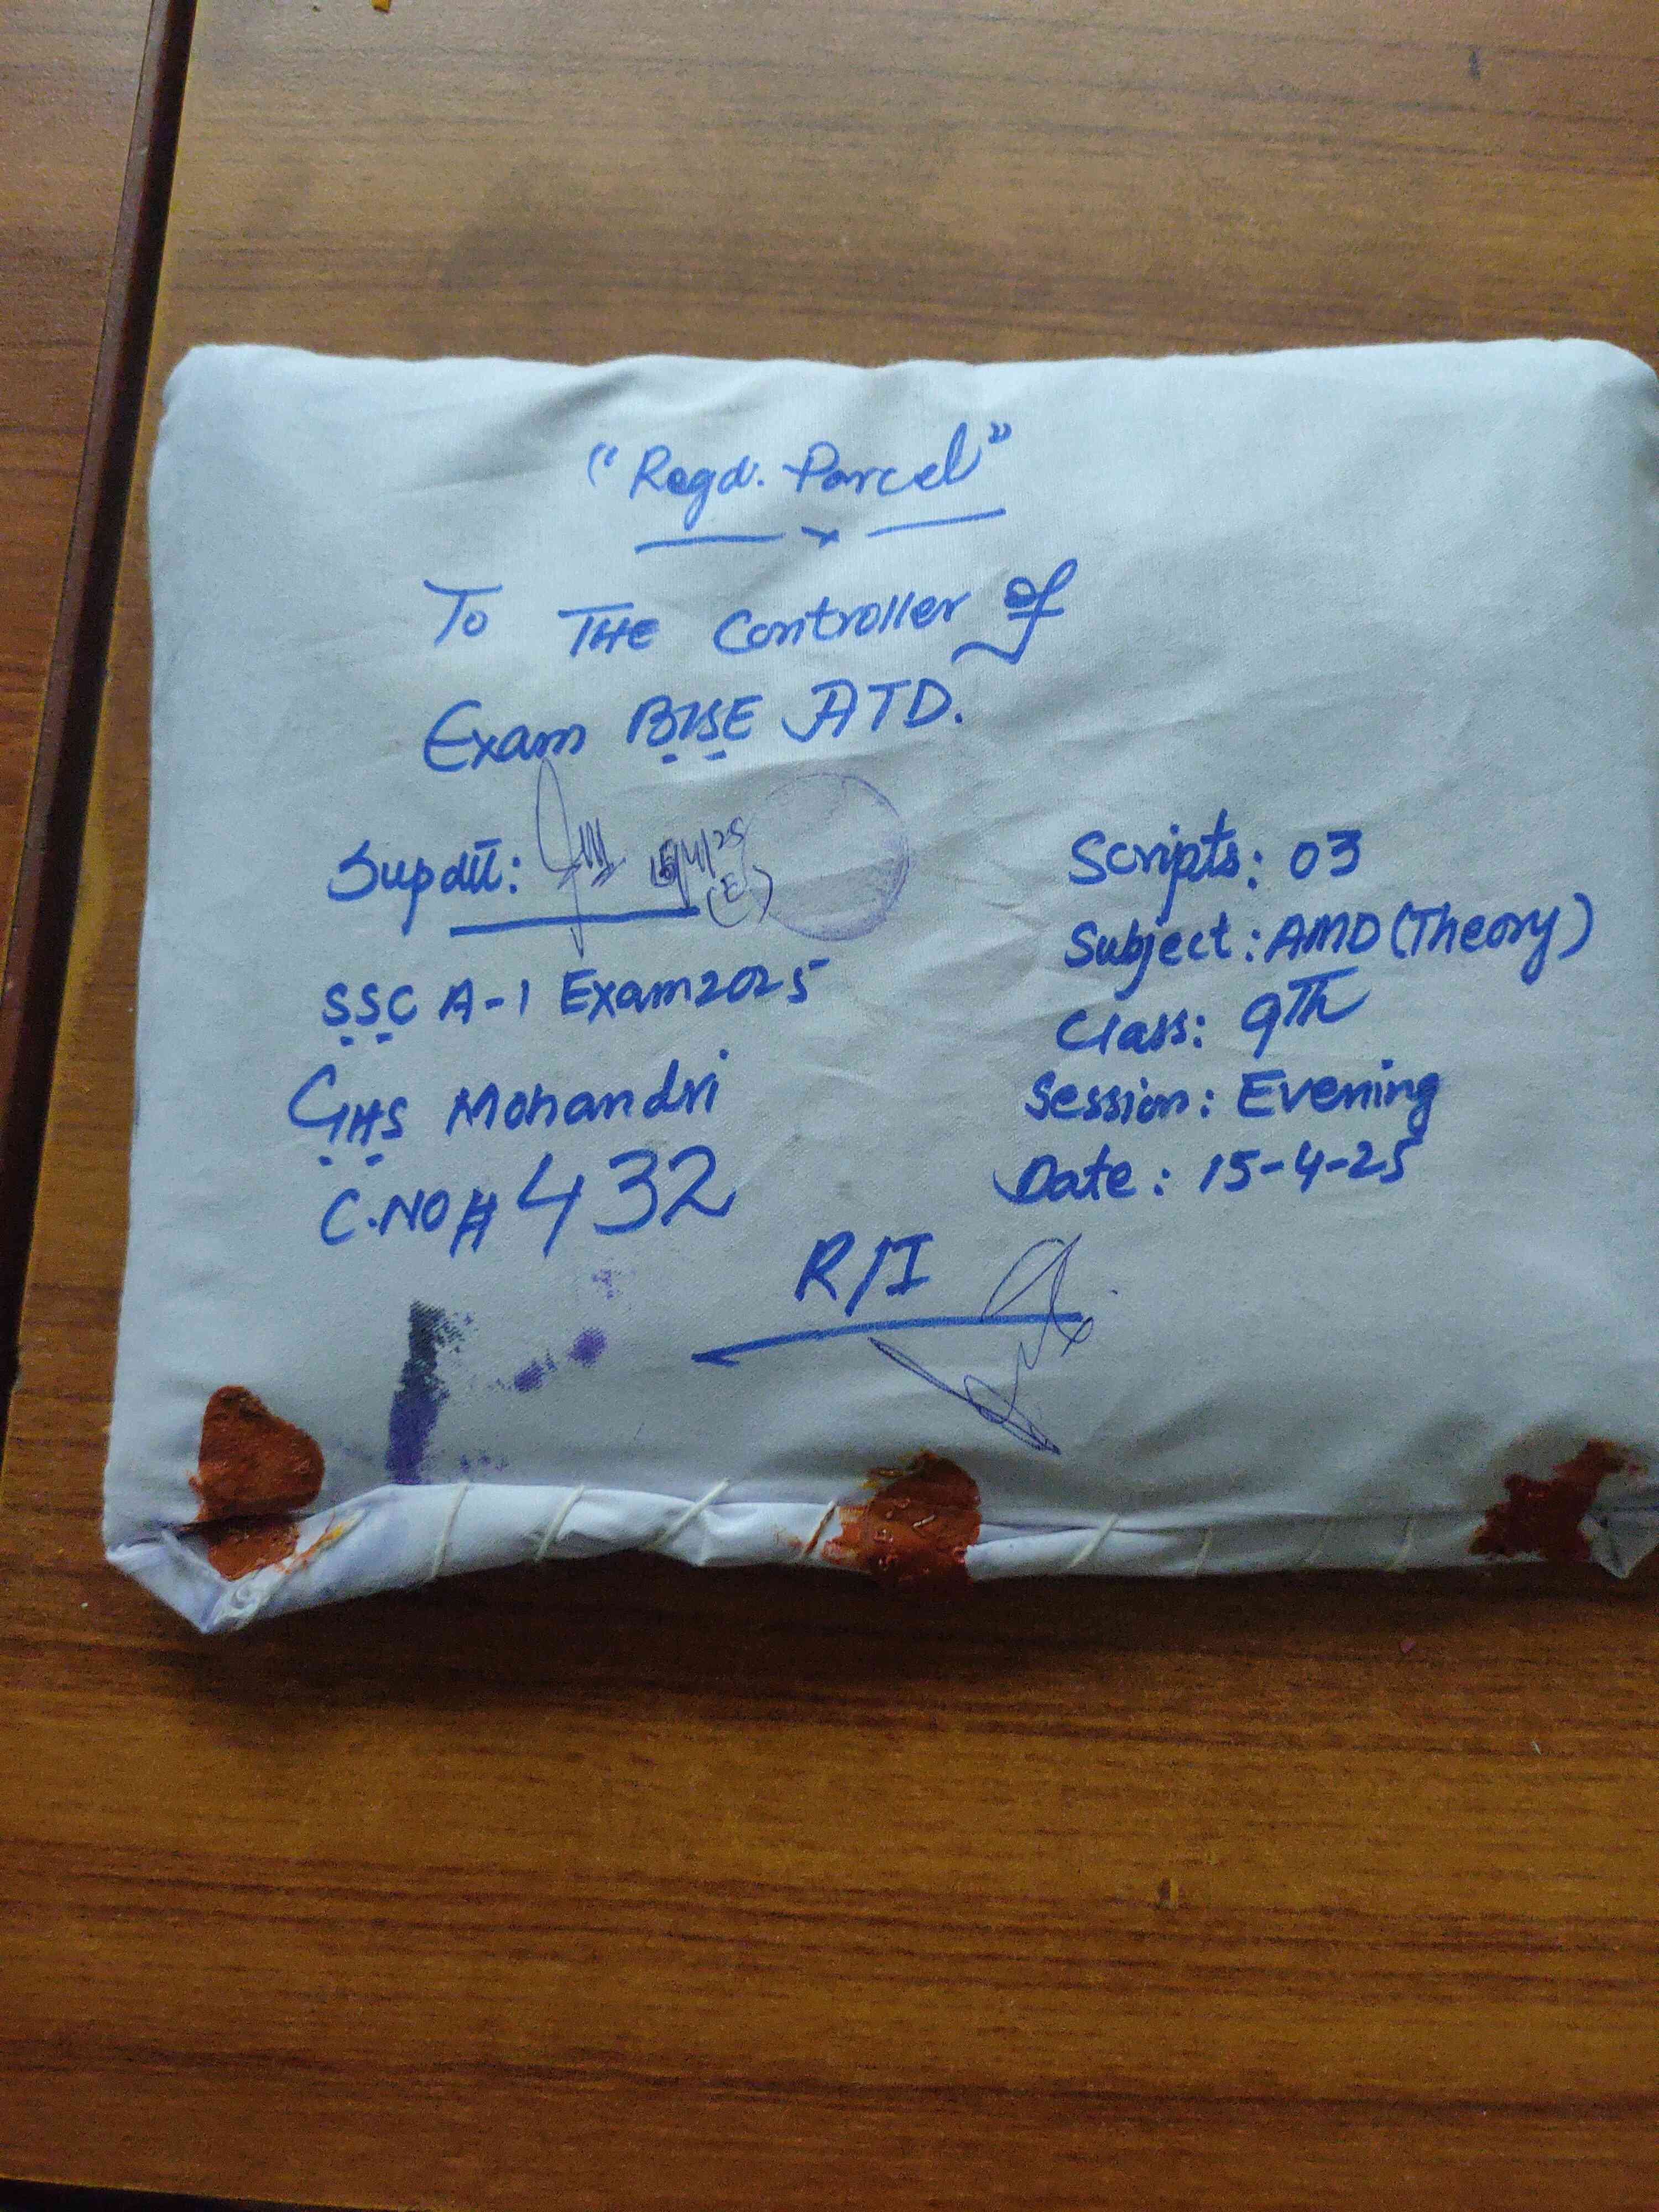 "Regd. Parcel"
To THE Controller of
Exam BISE ATD.
Supdtt: 15/4/25
(E)
SSC A-1 Exam 2025
GHS Mohandri
C.NO # 432
Scripts: 03
Subject: AMD (Theory)
Class: 9th
Session: Evening
Date: 15-4-25
R/I